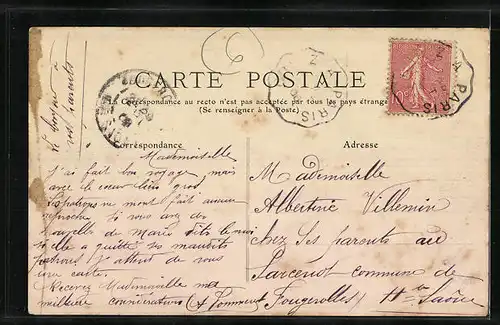 CARTE POSTALE
La Correspondance au recto n'est pas acceptée par tous les pays étrangers
(Se renseigner à la Poste)
Correspondance
Mademoiselle
J'ai fait bon voyage, mais
avec le cœur bien gros
mont fait aucun
reproche si vous avez des
nouvelles de Marie dites le moi
si elle a quitté ses maudits
patrons J'attent de vous
une carte.
Recevez Mademoiselle mes
meilleure considérations
Adresse
Mademoiselle
Albertine Villemin
chez Ses parents au
Sarcenot commune de
Fougerolles Hte Saône
PARIS
PARIS